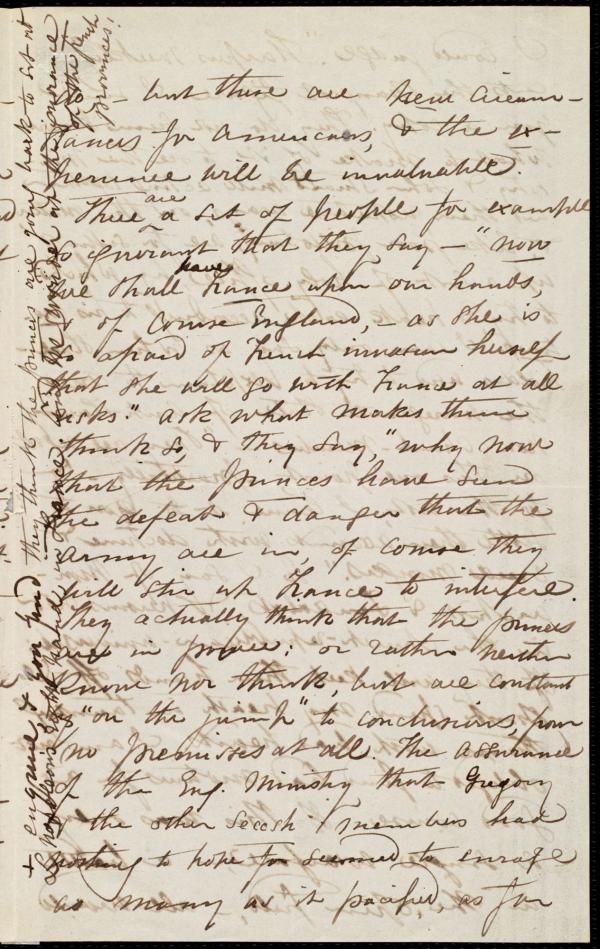 to - but these are new circum-
stances for Americans, & the ex-
perience will be invaluable.
There are a set of people for example
so ignorant that they say - "now
we shall have France upon our hands,
& of course England, - as she is
so afraid of French invasion herself
that she will go with France at all
risks." Ask what makes them
think so, & they say, "why now
that the princes have seen
the defeat & danger that the
army are in, of course they
will stir up France to interfere.
They actually think that the princes
are in power; or rather neither
know nor think, but are content
to "on the jump" to conclusions, from
no premises at all. The assurance
of the Eng. Ministry that Gregory
& the other secesh members had
nothing to hope for seemed to enrage
as many as it pacified, as for
+ enquire, & you find they think the princes are going back to sit at
L. Napoleon's right hand in France, and we wonder at the ignorance
of the French
provinces!